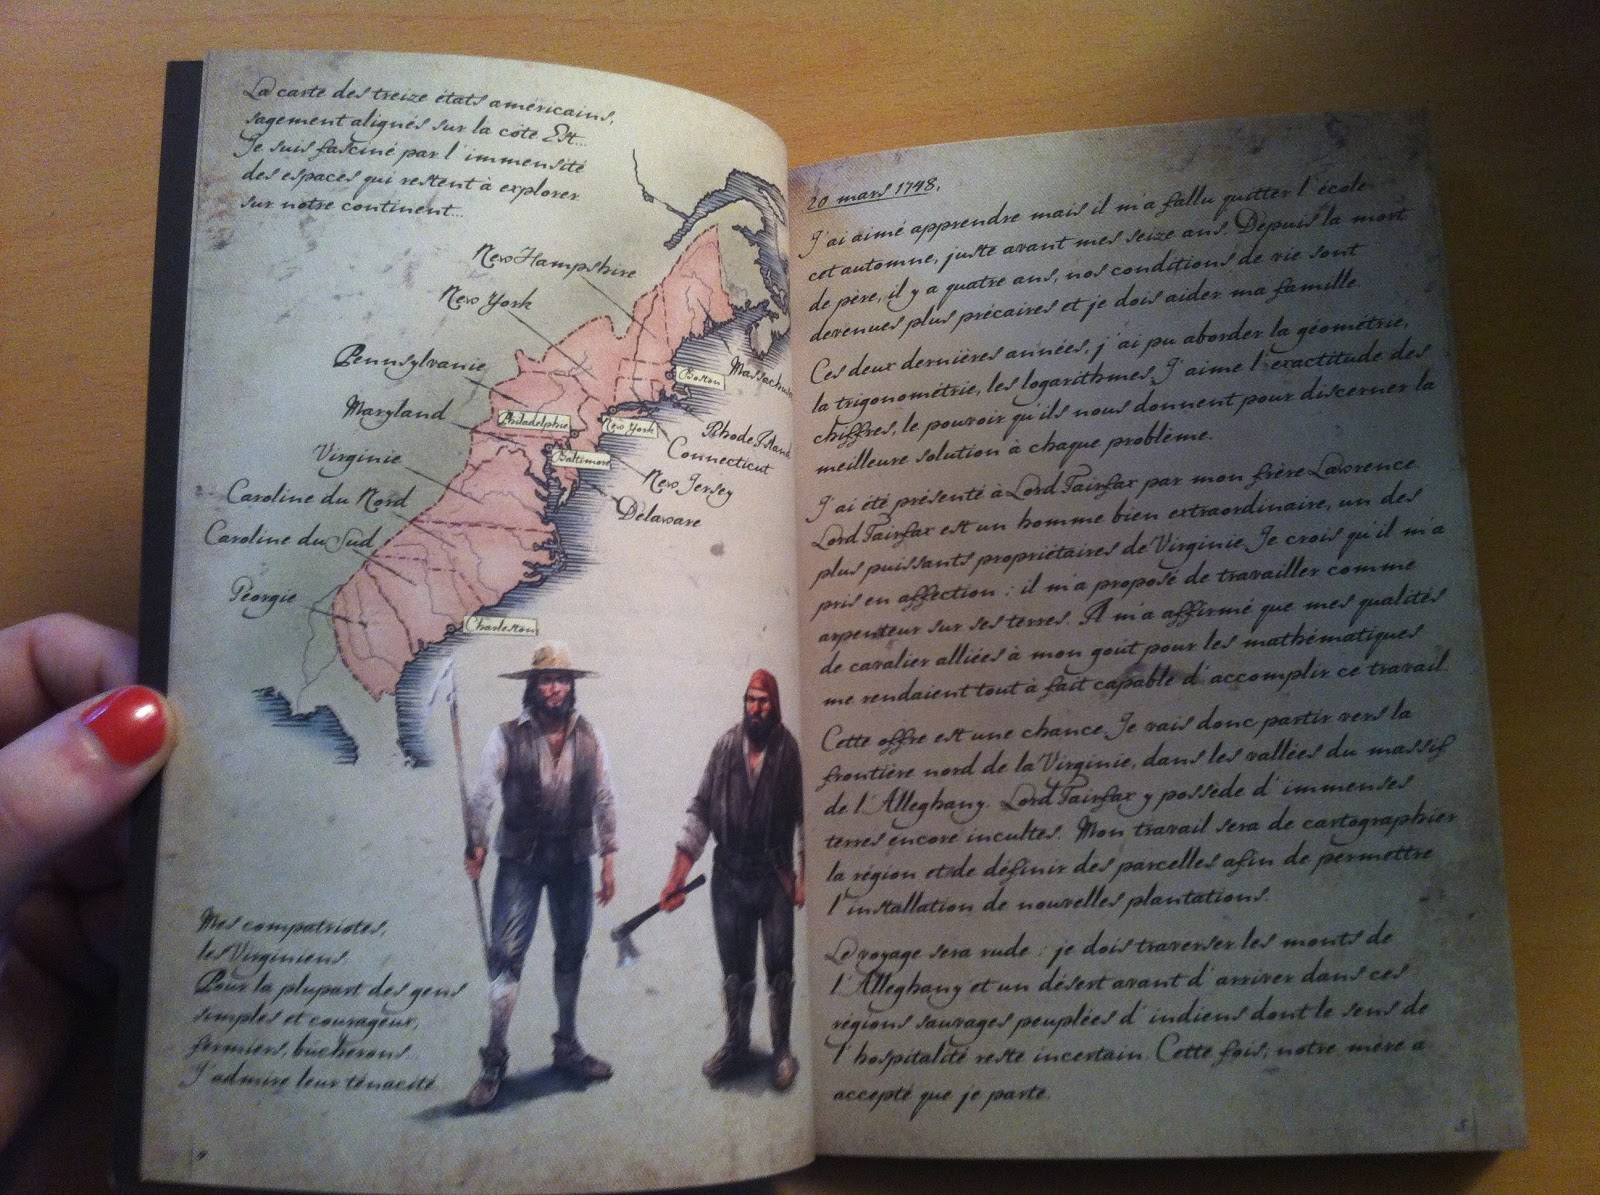 La carte des treize états américains,
sagement alignés sur la côte Est...
Je suis fasciné par l'immensité
des espaces qui restent à explorer
sur notre continent...
New Hampshire
New York
Pennsylvanie
Maryland
Virginie
Caroline du Nord
Caroline du Sud
Géorgie
Boston
Massachu
Philadelphie
New York
Rhode Island
Baltimore
Connecticut
New Jersey
Délaware
Charleston
Mes compatriotes,
les Virginiens.
Pour la plupart des gens
simples et courageux,
fermiers, bûcherons...
J'admire leur ténacité.
4
20 mars 1748,
J'ai aimé apprendre mais il m'a fallu quitter l'école
cet automne, juste avant mes seize ans. Depuis la mort
de père, il y a quatre ans, nos conditions de vie sont
devenues plus précaires et je dois aider ma famille.
Ces deux dernières années, j'ai pu aborder la géométrie,
la trigonométrie, les logarithmes. J'aime l'exactitude des
chiffres, le pouvoir qu'ils nous donnent pour discerner la
meilleure solution à chaque problème.
J'ai été présenté à Lord Fairfax par mon frère Lawrence.
Lord Fairfax est un homme bien extraordinaire, un des
plus puissants propriétaires de Virginie. Je crois qu'il m'a
pris en affection : il m'a proposé de travailler comme
arpenteur sur ses terres. Il m'a affirmé que mes qualités
de cavalier alliées à mon goût pour les mathématiques
me rendaient tout à fait capable d'accomplir ce travail.
Cette offre est une chance. Je vais donc partir vers la
frontière nord de la Virginie, dans les vallées du massif
de l'Alleghany. Lord Fairfax y possède d'immenses
terres encore incultes. Mon travail sera de cartographier
la région et de définir des parcelles afin de permettre
l'installation de nouvelles plantations.
Le voyage sera rude : je dois traverser les monts de
l'Alleghany et un désert avant d'arriver dans ces
régions sauvages peuplées d'indiens dont le sens de
l'hospitalité reste incertain. Cette fois, notre mère a
accepté que je parte.
5